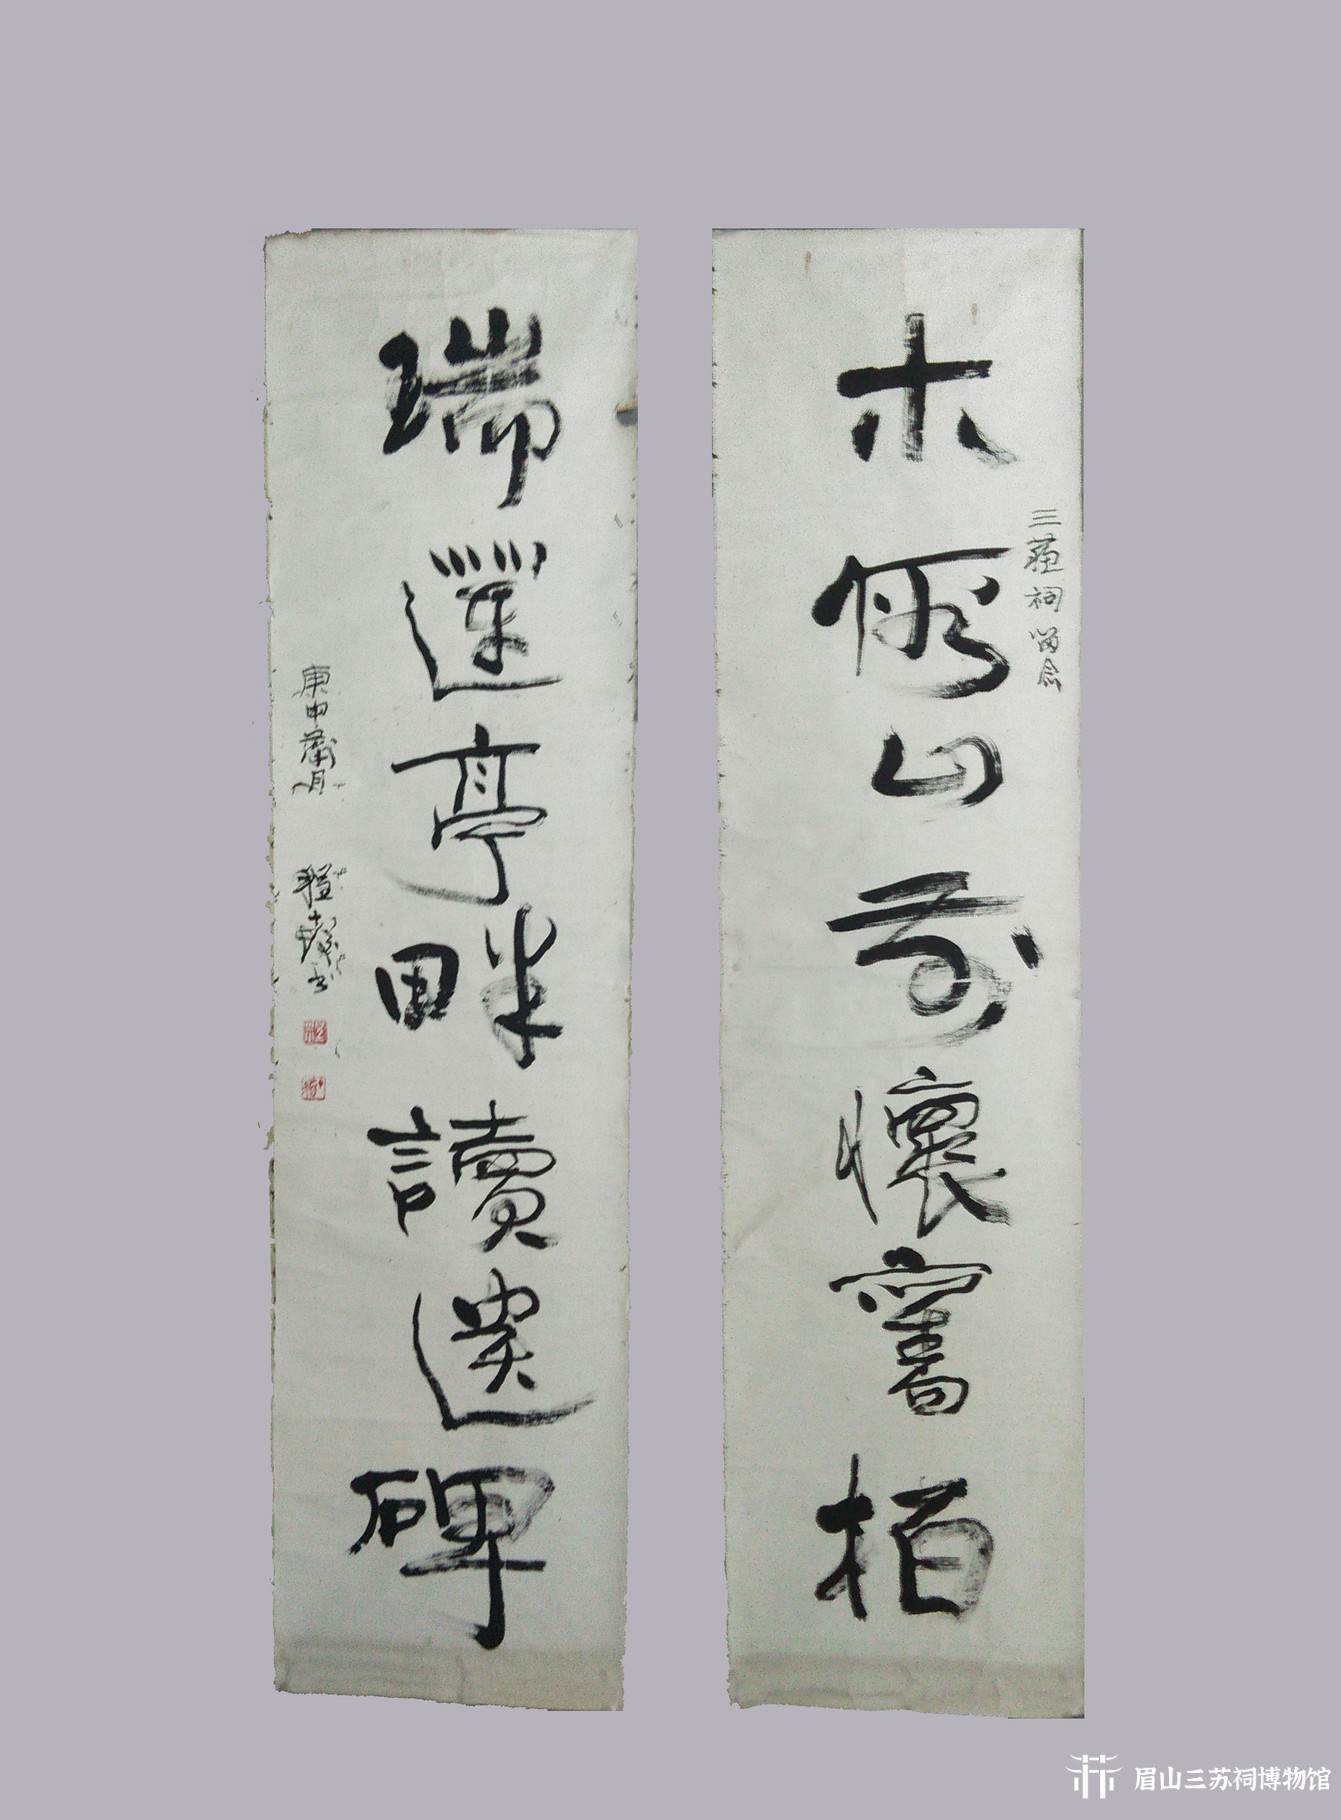 三蘇祠留念
木假山前懷舊柏
瑞蓮亭畔讀遺碑
庚申蘭月
眉山三苏祠博物馆